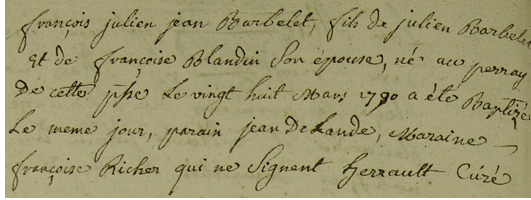 françois julien jean Barbelet, fils de julien Barbelet
et de françoise Blandin Son épouse, né au perray
de cette psse Le vingt huit Mars 1790 a été Baptizé
Le meme jour, parain jean deLande, Maraine
françoise Richer qui ne Signent herrault Curé